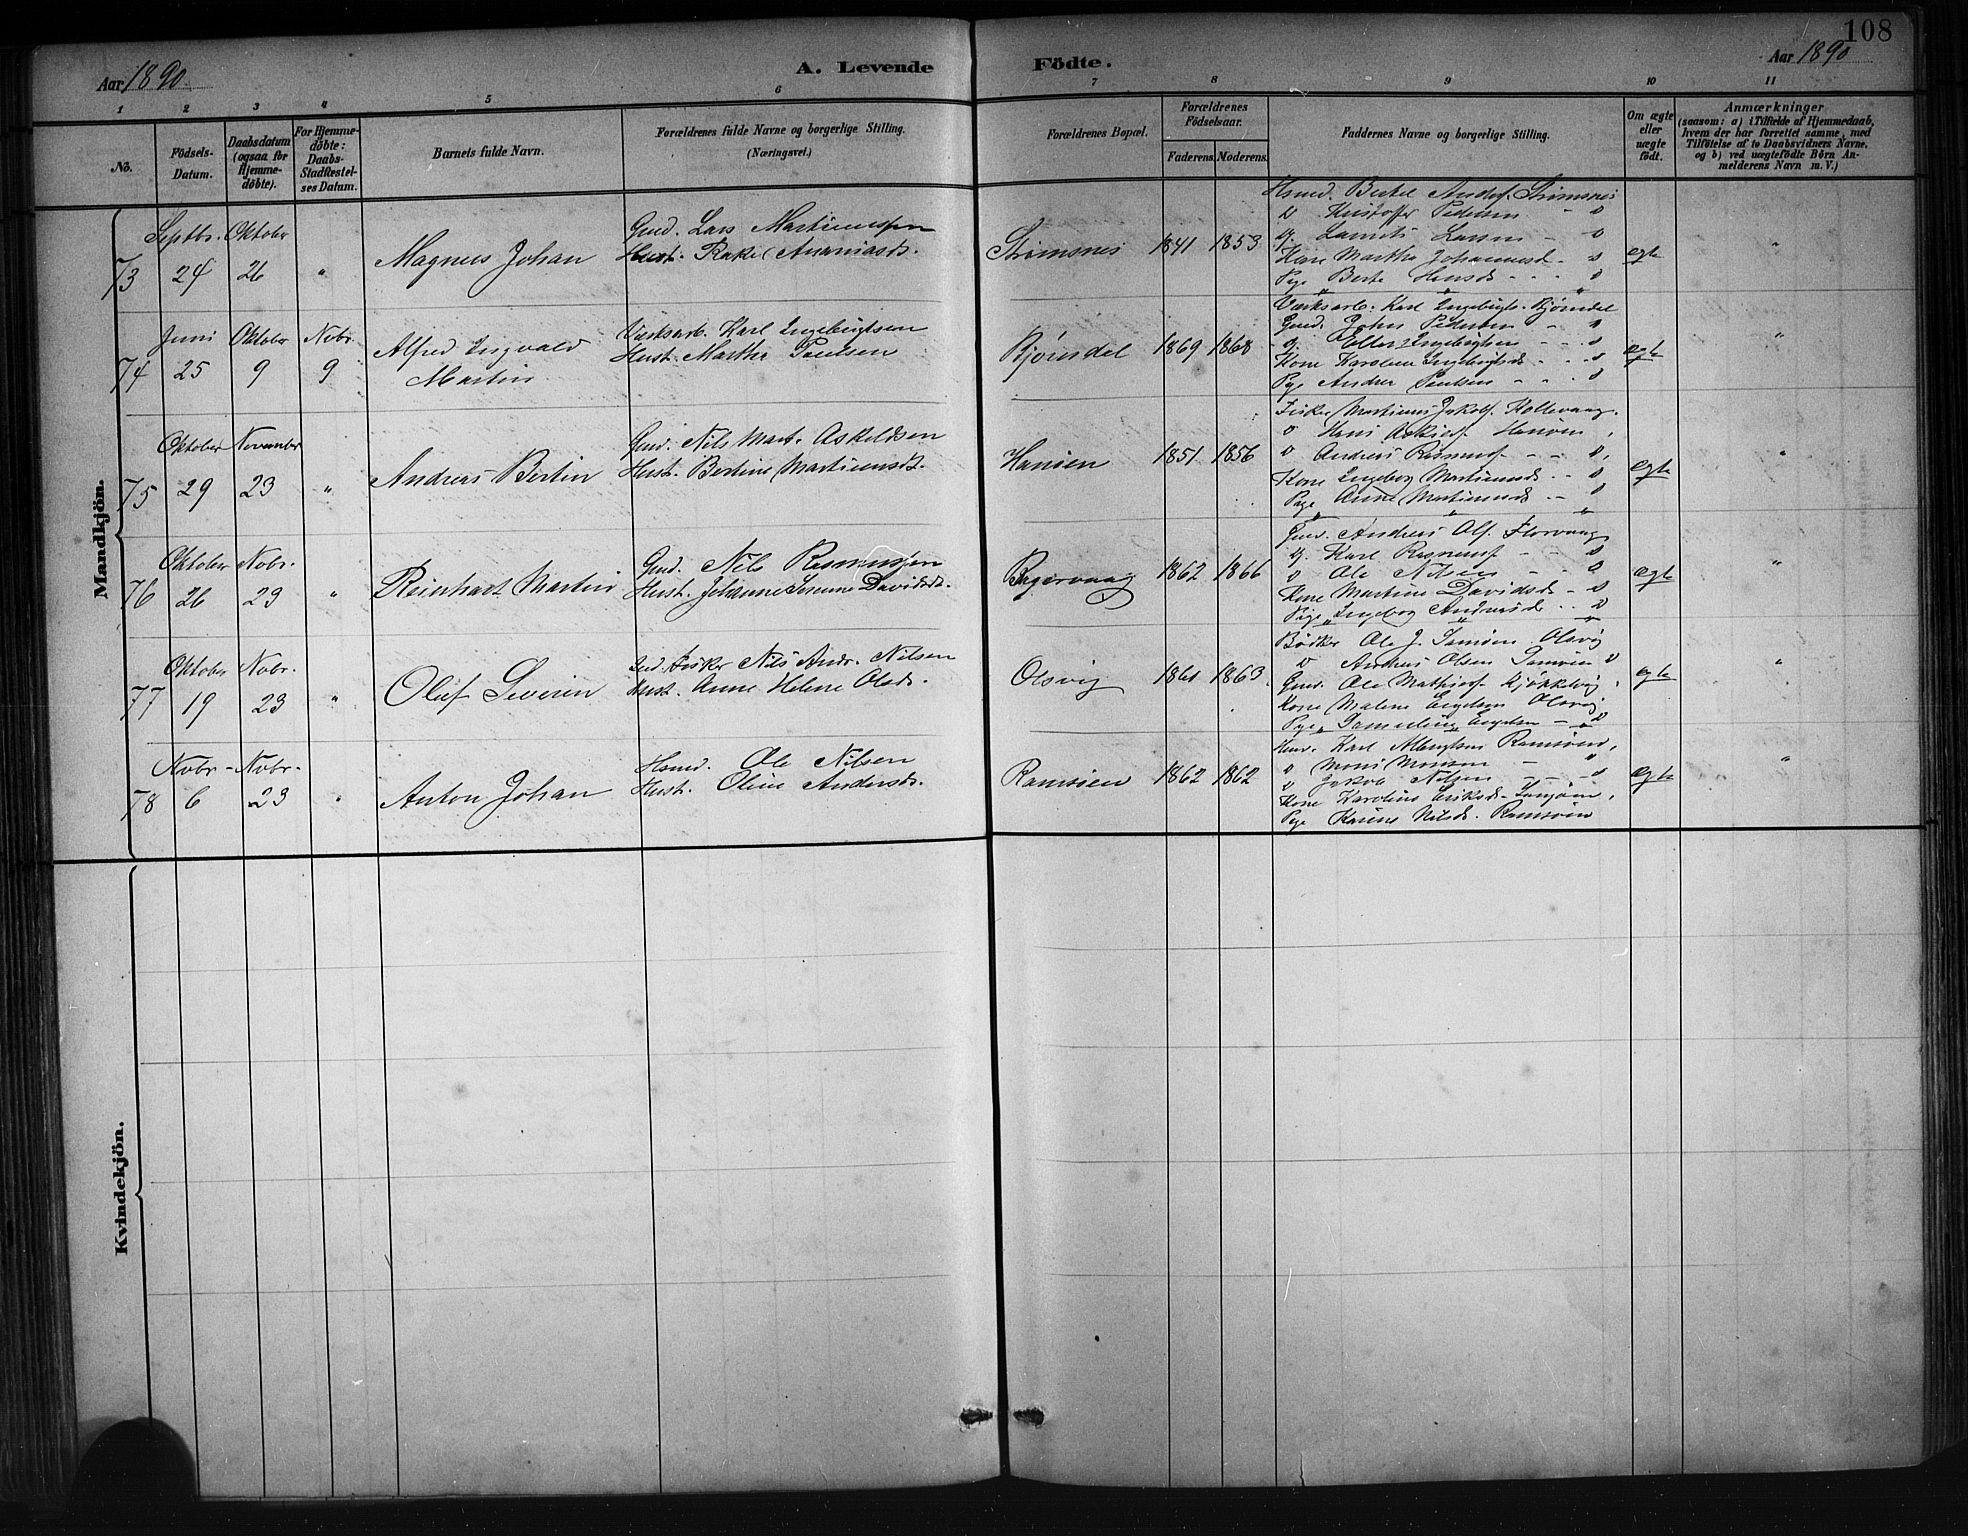 108
Aar 1890.
A. Levende
Födte.
Aar 1890
1 2 3 4 5 6 7 8 9 10 11
No.
Födsels-Datum.
Daabsdatum (ogsaa for Hjemme-döbte).
For Hjemme-döbte: Daabs-Stadfæstel-ses Datum.
Barnets fulde Navn.
Forældrenes fulde Navne og borgerlige Stilling.
(Næringsvei.)
Forældrenes Bopæl.
Forældrenes Födselsaar.
Faderens. Moderens.
Faddernes Navne og borgerlige Stilling.
Om ægte eller uægte födt.
Anmærkninger
(saasom: a) i Tilfælde af Hjemmedaab, hvem der har forrettet samme, med Tilföielse af to Daabsvidners Navne, og b) ved uægtefödte Börn An-melderens Navn m. V.)
Mandkjön.
73
Septbr. 24
Oktober 26
"
Magnus Johan
Gmd. Lars Martinussen
Hust. Rakel Ananiasd.
Strømsnes
1841 1853
Hsmd. Bertel Andsf. Strømsnes
" Kristoffer Pedersen - "
g. Laurits Larsen - "
Kone Martha Johannesd. - "
Pige Berte Hansd. - - "
Egte
"
74
Juni 25
Oktober 9
Nobr. 9
Alfred Ingvald
Martin
Værksarb. Karl Ingebrigtsen
Hust. Martha Paulsen
Bjørndal
1869 1868
Værksarb. Karl Ingebrigts. Bjørndal
Gmd. Johs Pedersen - "
Kone Karoline Ingebrigtsd. - - "
Pige Andrea Paulsen - - "
Egte
"
75
Oktober 29
November 23
"
Andreas Bertin
Gmd. Nils Mart. Askeldsen
Hust. Bertine Martinusdt.
Hanøen
1851 1856
Fisker Martinus Jakobs. Kollevaag.
" Andreas Rasmusf - - "
Kone Ingeborg Martinusd. - - "
Pige Anne Martinusd. - - "
Egte
"
76
Oktober 26
Nobr. 23
"
Reinhart Martin
Gmd. Nils Rasmussen
Hust. Johanne Serine Davidsdt.
1862 1866
Gmd. Andreas Ols. Florvaag
g. Karl Rasmusf - - "
" Ole Nilsen - - "
Kone Martine Davidsd. - "
Pige Ingeborg Andreasd. - - "
Egte
"
77
Oktober 19
Nobr. 23
"
Oluf Severin
Fisker Nils Andr. Nilsen
Hust. Anne Helene Olsd.
Olsvig
1861 1863
Bödker Ole J. Olsvig
" Andreas Olsen "
Gmd. Ole Mathiasf.
Kone Malene Olsvig
Pige
Egte
"
78
Nobr- 6
Nobr. 23
"
Anton Johan
Hsmd. Ole Nilsen
Hust. Oline Andersd.
Ramsøen
1862 1862
Karl Ramsøen,
" Mons Monsen - "
" Jakob Nilsen - - "
Kone Karoline Eriksd.
Pige Karine Nilsd. Ramsøen
Egte
"
Kvindekjön.